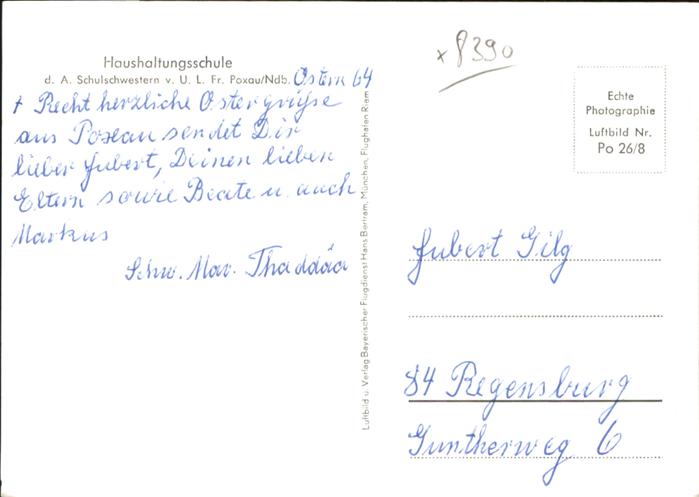 Haushaltungsschule
d. A. Schulschwestern v. U. L. Fr. Poxau/Ndb.
Ostern 64
+ Recht herzliche Ostergrüße
aus Poxau sendet Dir
lieber Hubert, Deinen lieben
Eltern sowie Beate u. auch
Markus
Schw. Mar. Thaddäa
Luftbild u. Verlag Bayerischer Flugdienst Hans Bertram, München, Flughafen Riem
x 8390
Echte
Photographie
Luftbild Nr.
Po 26/8
Hubert Gilg
84 Regensburg
Guntherweg 6